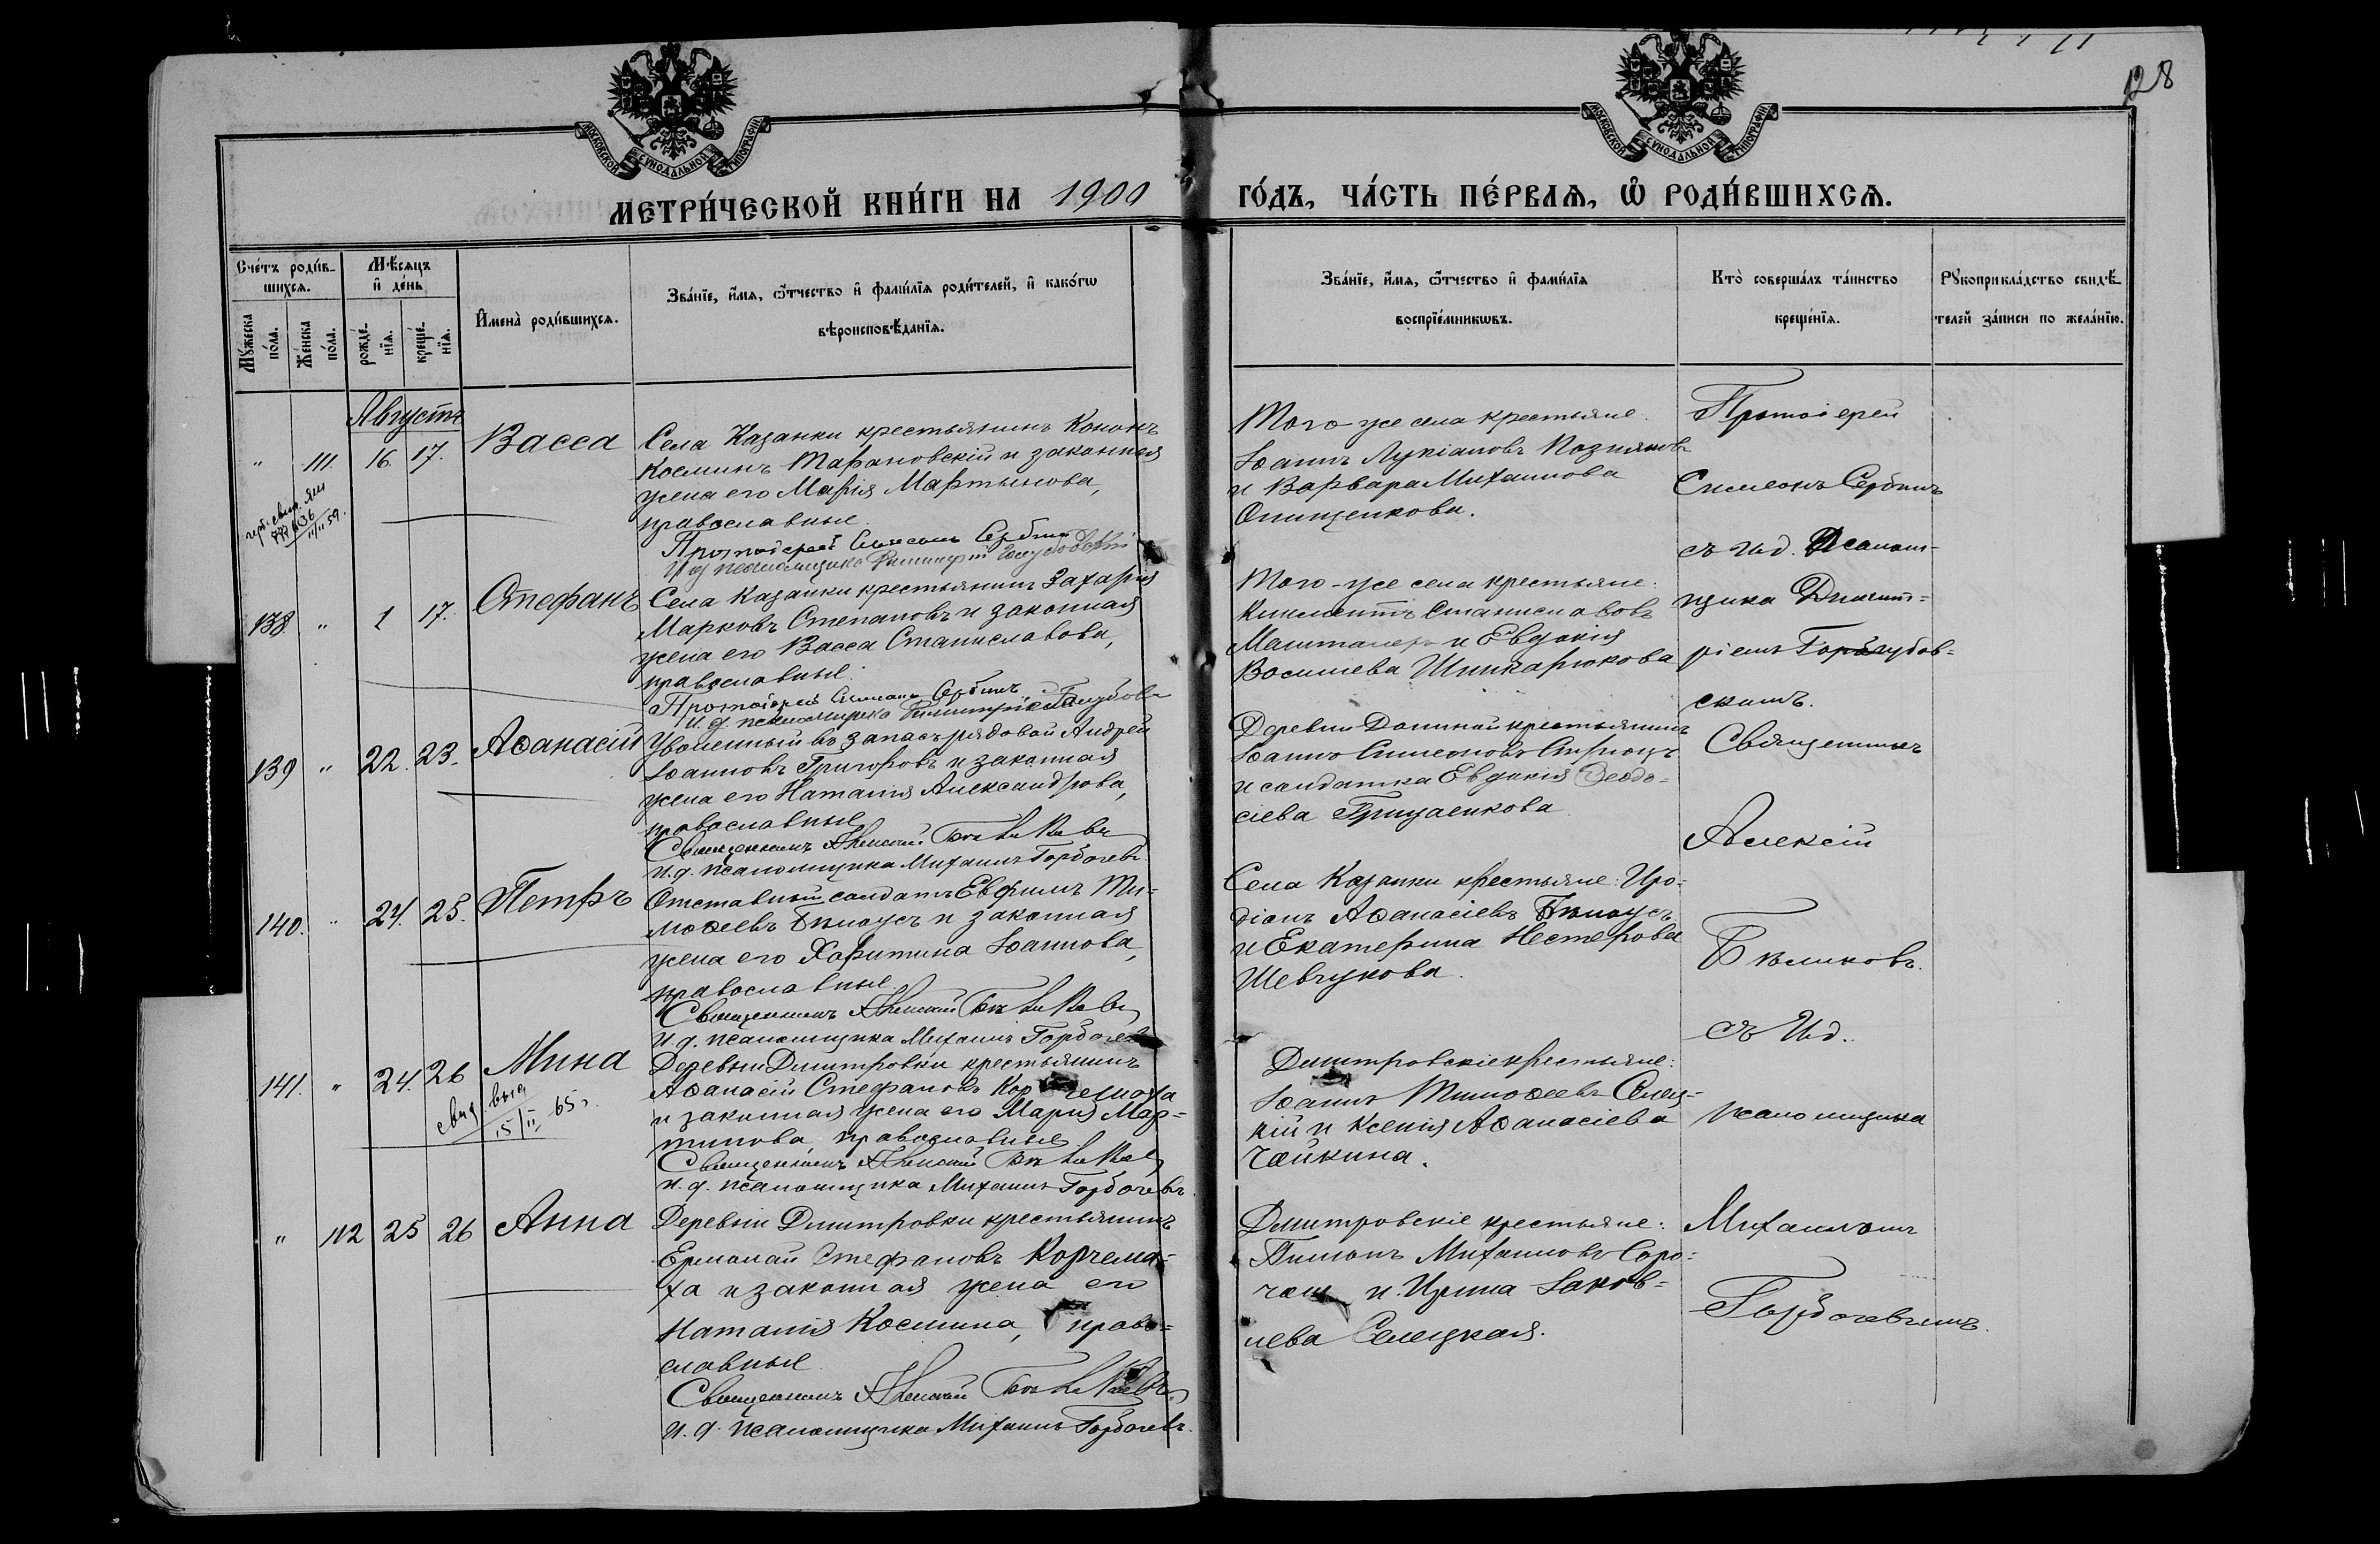 128
МОСКОВСКОЙ СѴНОДАЛЬНОЙ ТИПОГРАФІИ
МОСКОВСКОЙ СѴНОДАЛЬНОЙ ТИПОГРАФІИ
МЕТРИ́ЧЕСКОЙ КНИ́ГИ НА 1900 ГО́ДЪ, ЧА́СТЬ ПЕ́РВАѦ, Ѽ РОДИ́ВШИХСѦ.
Сче́тъ роди́в-
шихсѧ.
Мꙋ́жеска по́ла.
Же́нска по́ла.
Мѣ́сѧцъ
и҆ де́нь
рожде́-нїѧ.
креще́-нїѧ.
И҆мена̀ роди́вшихсѧ.
Зва́нїе, и҆́мѧ, ѻ҆́тчество и҆ фами́лїѧ роди́телей, и҆ како́гѡ
вѣроисповѣ́данїѧ.
Зва́нїе, и҆́мѧ, ѻ҆́тчество и҆ фами́лїѧ
воспрїе́мникѡвъ.
Кто̀ соверша́лъ та́инство
креще́нїѧ.
Рꙋкоприкла́дство свидѣ́-
телей за́писи по жела́нїю.
Августъ
" 111. 16. 17. Васса
Села Казанки крестьянинъ Кононъ
Косминъ Тарановскій и законная
жена его Марія Мартынова,
православные.
Протоіерей Симеонъ Сербинъ
И д псаломщика Димитрій
Того-же села крестьяне
Іоаннъ Лукіановъ Позняковъ
и Варвара Михаилова
Онищенкова.
Протоіерей
Симеонъ Сербинъ
съ и.д. Псалом-
щика Димит-
ріемъ Голубов-
скимъ.
138. " 1 17. Стефанъ
Села Казанки крестьянинъ Захарія
Марковъ Степановъ и законная
жена его Васса Станиславова,
православные.
Протоіерей Симеонъ Сербинъ
И. д. псаломщика Димитрій
Того-же села крестьяне:
Климентъ Станиславовъ
Машталеръ и Евдокія
Васильева Шинкарюкова
139 " 22. 23. Аѳанасій
Уволенный въ запасъ рядовой Андрей
Іоанновъ Григоровъ и законная
жена его Наталія Александрова,
православные
Священникъ Алексій Бѣликовъ
И. д. псаломщика Михаилъ Горбачевъ
Деревни крестьянинъ
Іоаннъ Симеоновъ
и солдатка Евдокія Ѳеодо-
сіева Грицаенкова
Священникъ
Алексій
Бѣликовъ.
съ И.д.
псаломщика
Михаиломъ
Горбачевымъ.
140. " 24. 25. Петръ
Отставный солдатъ Евфимъ Ти-
моѳеевъ Бѣлоусъ и законная
жена его Харитина Іоаннова,
православные
Священникъ Алексій Бѣликовъ
И. д. псаломщика Михаилъ Горбачевъ
Села Казанки крестьяне: Иро-
діонъ Аѳанасіевъ Бѣлоусъ
и Екатерина Нестерова
Шевчукова.
141. " 24. 26 Мина
свид. выд
15/II 65 г.
Деревни Димитровки крестьянинъ
Аѳанасій Стефановъ Корчемаха
и законная жена его Марія Мар-
тинова православные
Священникъ Алексій Бѣликовъ
И. д. псаломщика Михаилъ Горбачевъ.
Димитровскіе крестьяне:
Іоаннъ Тимоѳеевъ Селец-
кій и Ксенія Аѳанасіева
Чайкина.
" 112 25 26 Анна
Деревни Димитровки крестьянинъ
Ермолай Стефановъ Корчема-
ха и законная жена его
Наталія Космина, право-
славные
Священникъ Алексій Бѣликовъ
И. д. псаломщика Михаилъ Горбачевъ.
Димитровскіе крестьяне:
Пименъ Михаиловъ
и Ирина Іаков-
лева Селецкая.